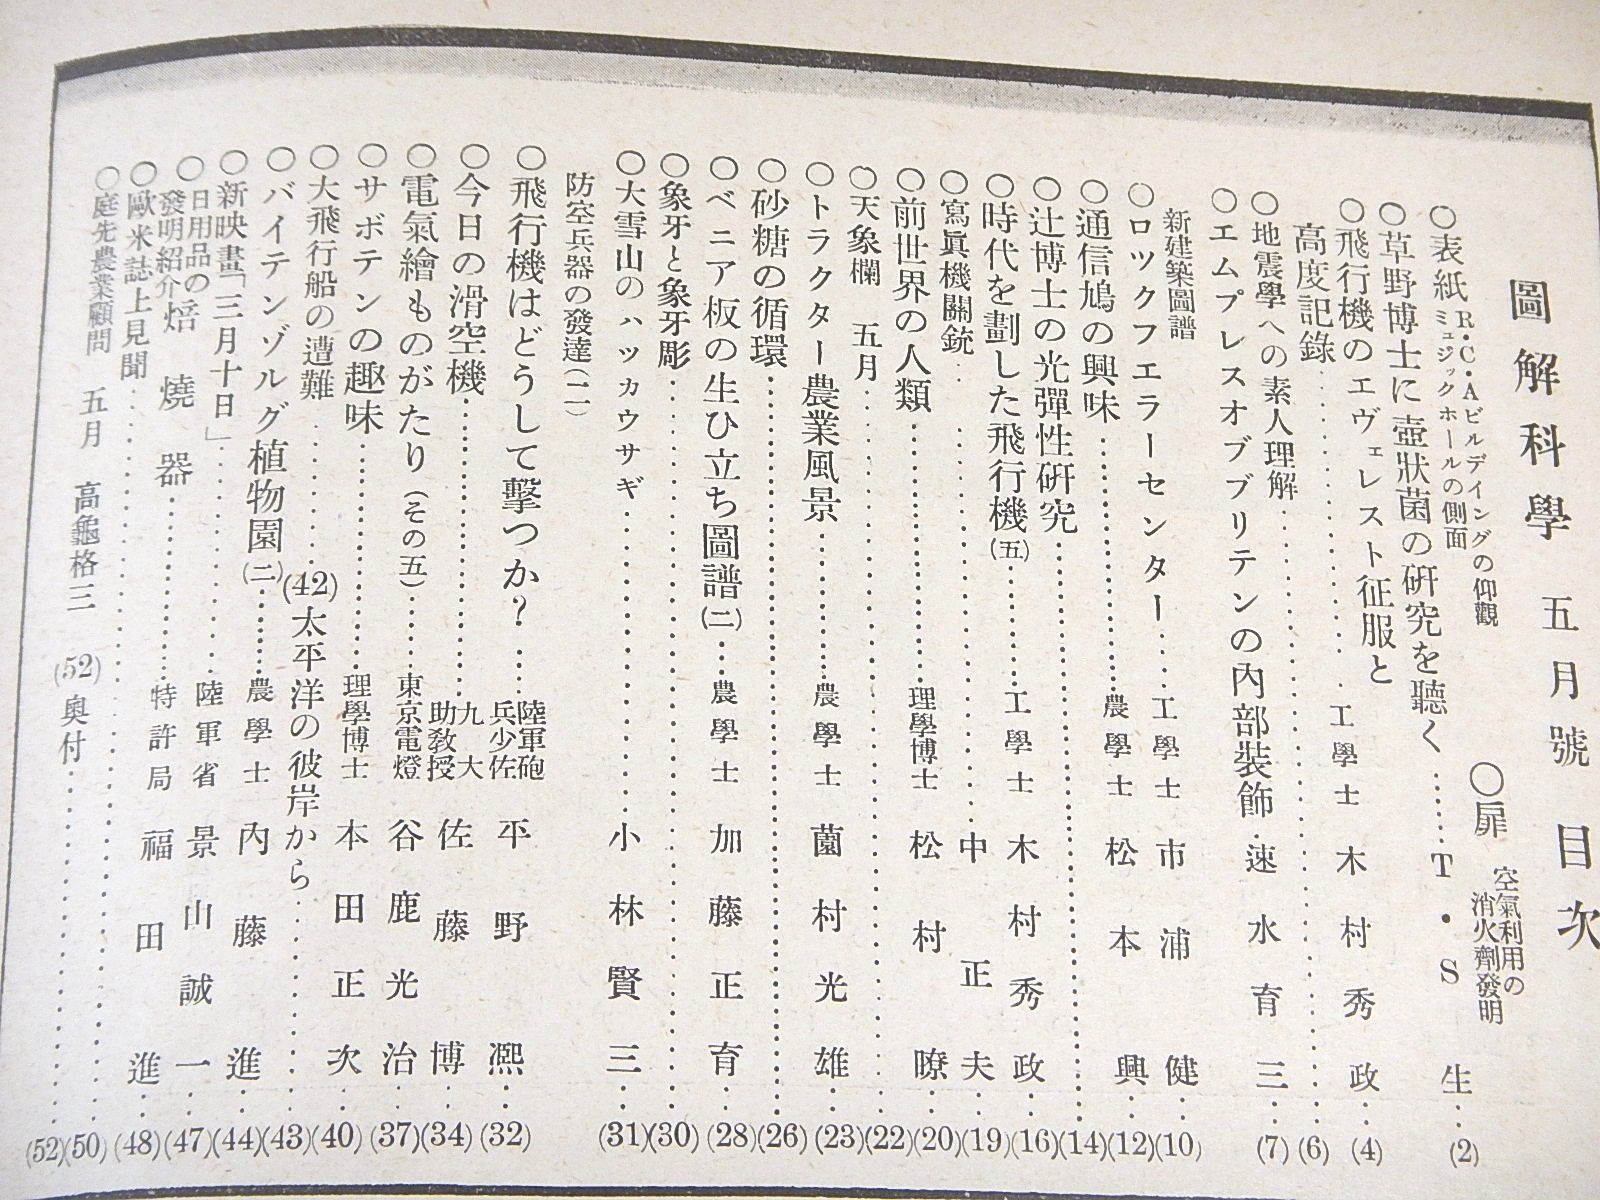 圖解科學 五月號 目次
○扉 空氣利用の消火劑發明
○表紙 R・C・Aビルデイングの仰觀
ミュジックホールの側面
○草野博士に壺狀菌の硏究を聽く……T・S生…(2)
○飛行機のエヴェレスト征服と
高度記錄……工學士 木村秀政…(4)
○地震學への素人理解……(6)
○エムプレスオブブリテンの內部裝飾 速水育三…(7)
新建築圖譜
○ロックフエラーセンター……工學士 市浦健…(10)
○通信鳩の興味……農學士 松本興…(12)
○辻博士の光彈性硏究……(14)
○時代を劃した飛行機(五)……工學士 木村秀政…(16)
○寫眞機關銃……中正夫…(19)
○前世界の人類……理學博士 松村瞭…(20)
○天象欄 五月……(22)
○トラクター農業風景……農學士 薗村光雄…(23)
○砂糖の循環……(26)
○ベニア板の生ひ立ち圖譜(二)……農學士 加藤正育…(28)
○象牙と象牙彫……(30)
○大雪山のハッカウサギ……小林賢三…(31)
防空兵器の發達(二)
○飛行機はどうして擊つか?……陸軍砲兵少佐 平野凞…(32)
○今日の滑空機……九大助敎授 佐藤博…(34)
○電氣繪ものがたり(その五)……東京電燈 谷鹿光治…(37)
○サボテンの趣味……理學博士 本田正次…(40)
○大飛行船の遭難……(42)太平洋の彼岸から……(43)
○バイテンゾルグ植物園(二)……農學士 內藤進…(44)
○新映畫「三月十日」……陸軍省 景山誠一…(47)
○日用品の發明紹介 焙燒器……特許局 福田進…(48)
○歐米誌上見聞……(50)
○庭先農業顧問 五月 高龜格三 (52)奥付……(52)